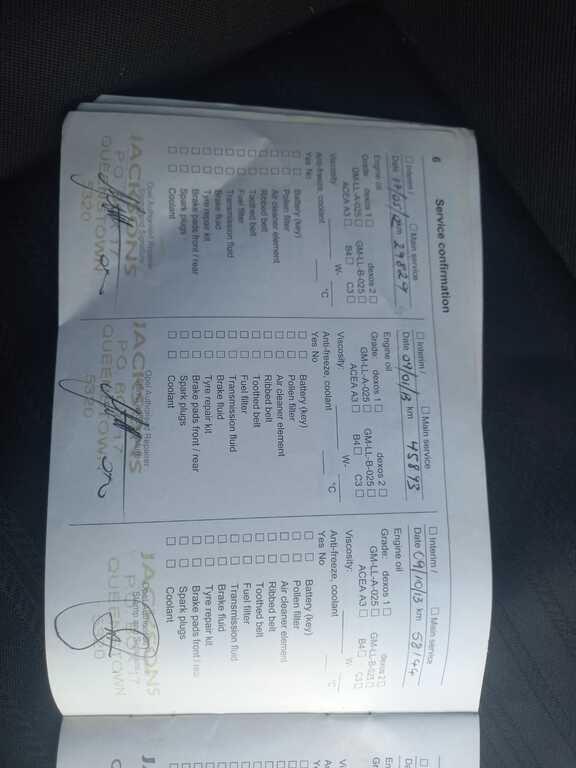 6 Service confirmation
Interim / Main service
Date 17/05/12 km 29829
Engine oil
Grade: dexos 1 dexos 2
GM-LL-A-025 GM-LL-B-025
ACEA A3 B4 C3
Viscosity: W-
Anti-freeze, coolant °C
Yes No
Battery (key)
Pollen filter
Air cleaner element
Ribbed belt
Toothed belt
Fuel filter
Transmission fluid
Brake fluid
Tyre repair kit
Brake pads front / rear
Spark plugs
Coolant
Opel Authorised Repairer
JACKSONS
P.O. 17
QUEENSTOWN
5320
Interim / Main service
Date 09/01/13 km 45893
Engine oil
Grade: dexos 1 dexos 2
GM-LL-A-025 GM-LL-B-025
ACEA A3 B4 C3
Viscosity: W-
Anti-freeze, coolant °C
Yes No
Battery (key)
Pollen filter
Air cleaner element
Ribbed belt
Toothed belt
Fuel filter
Transmission fluid
Brake fluid
Tyre repair kit
Brake pads front / rear
Spark plugs
Coolant
Opel Authorised Repairer
JACKSONS
P.O. 17
QUEENSTOWN
5320
Interim / Main service
Date 09/10/13 km 58144
Engine oil
Grade: dexos 1 dexos 2
GM-LL-A-025 GM-LL-B-025
ACEA A3 B4 C3
Viscosity: W-
Anti-freeze, coolant °C
Yes No
Battery (key)
Pollen filter
Air cleaner element
Ribbed belt
Toothed belt
Fuel filter
Transmission fluid
Brake fluid
Tyre repair kit
Brake pads front / rear
Spark plugs
Coolant
JACKSONS
17
QUEENSTOWN